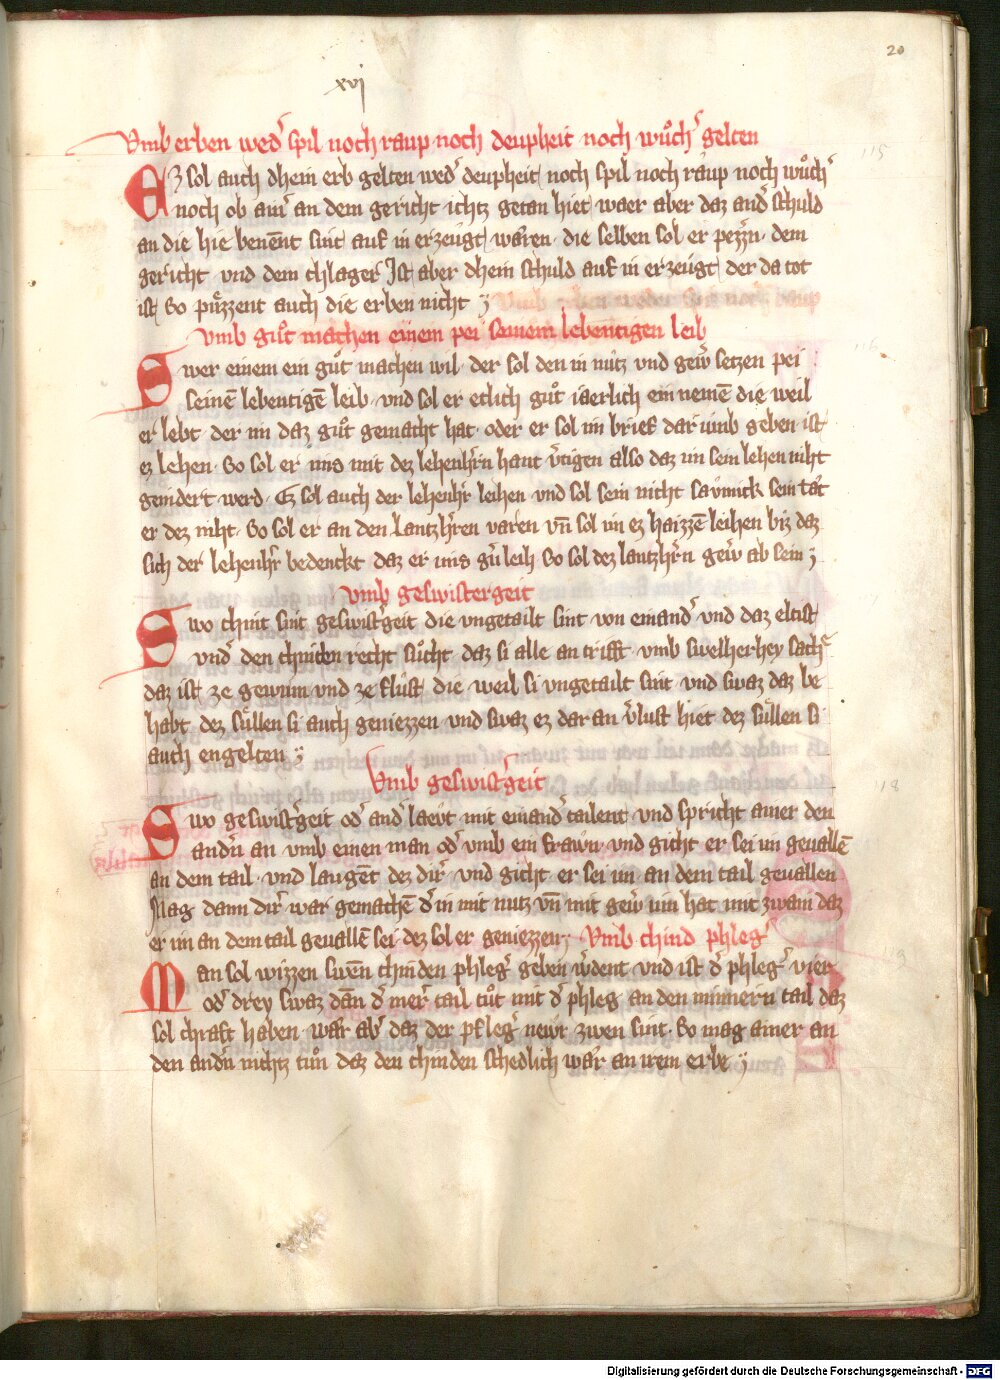 20
xvj
Vmb erben wedʼ spil noch raup noch deupheit noch wůchʼ gelten
115
EZ sol auch dhein erb gelten wedʼ deupheit noch spil noch raup noch wůchʼ
noch ob ainʼ an dem gericht ichtz getan hiet waer aber daz andʼ schuld
an die hie benent sint auf in erzeugt waren · die selben sol er pezzʼn · dem
gericht vnd dem chlager Ist aber dhein schuld auf in erzeugt der da tot
ist So půzzent auch die erben nicht
vmb gůt machen einem pei seinem lebentigen leib
116
Swer einem ein gůt machen wil · der sol den in nutz vnd gewʼ setzen pei
seinē lebentigē leib · vnd sol er etlich gůt iaerlich ein nemē die weil
er lebt · der im daz gůt gemacht hat · oder er sol im brief dar vmb geben · ist
ez lehen · So sol er ims mit dez lehenhʼrn hant vʼtigen also daz im sein lehen niht
gemidert werd · Ez sol auch der lehenhʼr leihen vnd sol sein nicht saumick sein tåt
er dez niht · So sol er an den Lantzhʼren varen vn̄ sol im ez haizzē leihen biz daz
sich der lehenhʼr bedenckt daz er ims gʼn leih So sol dez lantzhʼrn gewʼ ab sein
vmb geswistergeit
Swo chint sint geswistʼgeit die vngetailt sint von einandʼ vnd daz eltist
vndʼ den chinden recht sůcht daz si alle an trifft vmb swelherhey sachʼ
daz ist ze gewinn vnd ze flust die weil si vngetailt sint vnd swaz daz be
habt dez sůllen si auch geniezzen vnd swaz ez dar an vʼlust hiet dez sůllen si
auch engelten
Vmb geswistʼgeit
118
Swo geswistʼgeit odʼ andʼ laevt mit einandʼ tailent · vnd spricht ainer den
andʼn an vmb einen man odʼ vmb ein frawn · vnd gicht er sei im geuallē
an dem tail · vnd laugēt dez dirʼ vnd gicht · er sei im · an dem tail geuallen
Mag dann dirʼ war gemachē dʼ in mit nutz vn̄ mit gewʼ inn hat mit zwain daz
er im an dem tail geuallē sei dez sol er geniezzen · Vmb chind phlegʼ
Man sol wizzen swēn chinden phlegʼ geben wʼdent vnd ist dʼ phlegʼ vier
odʼ drey swaz dān dʼ merʼ tail tůt mit dʼ phleg an den minnern tail daz
sol chraft haben · war abʼ daz der pflegʼ newr zwen sint · So mag ainer an
den andʼn nichtz tůn daz den chinden schedlich war an irem erbe
Digitalisierung gefördert durch die Deutsche Forschungsgemeinschaft · DFG